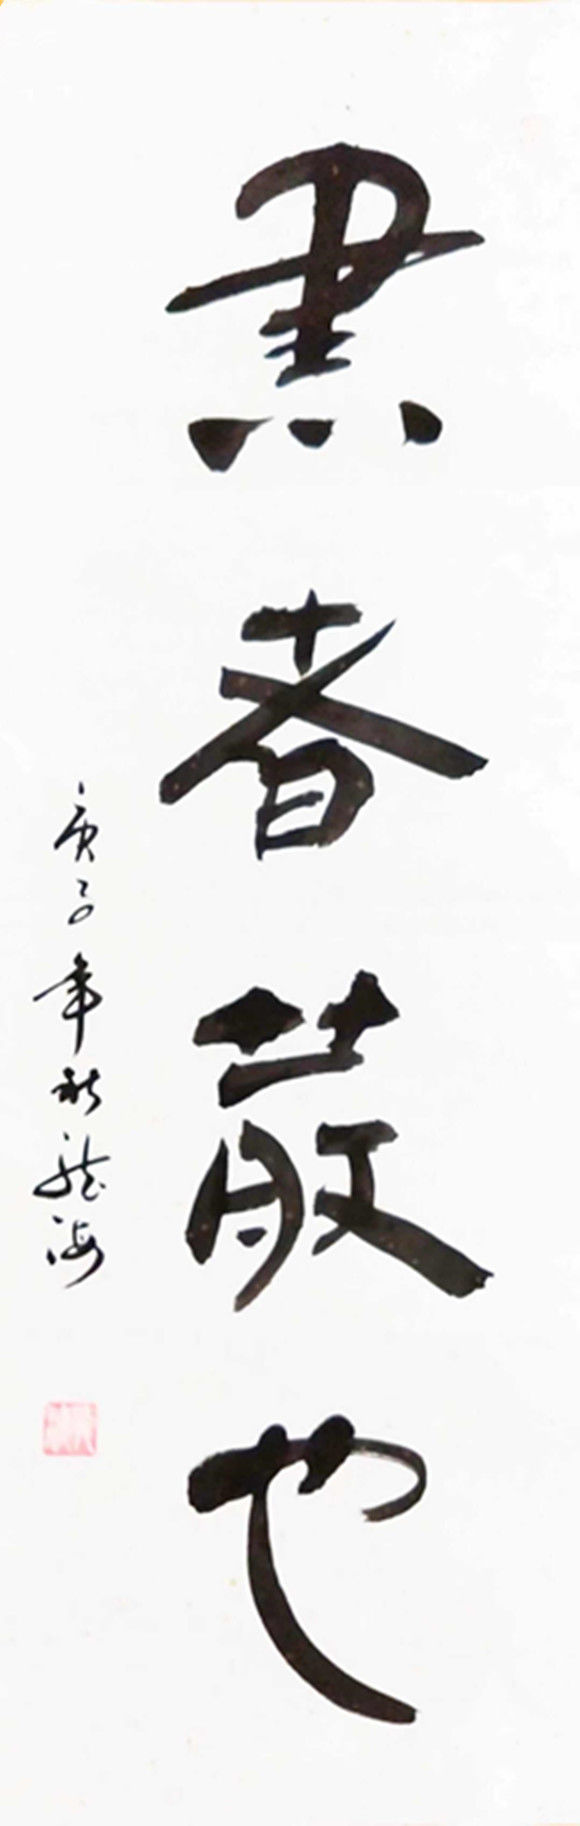 書者散也
庚子年秋龍海